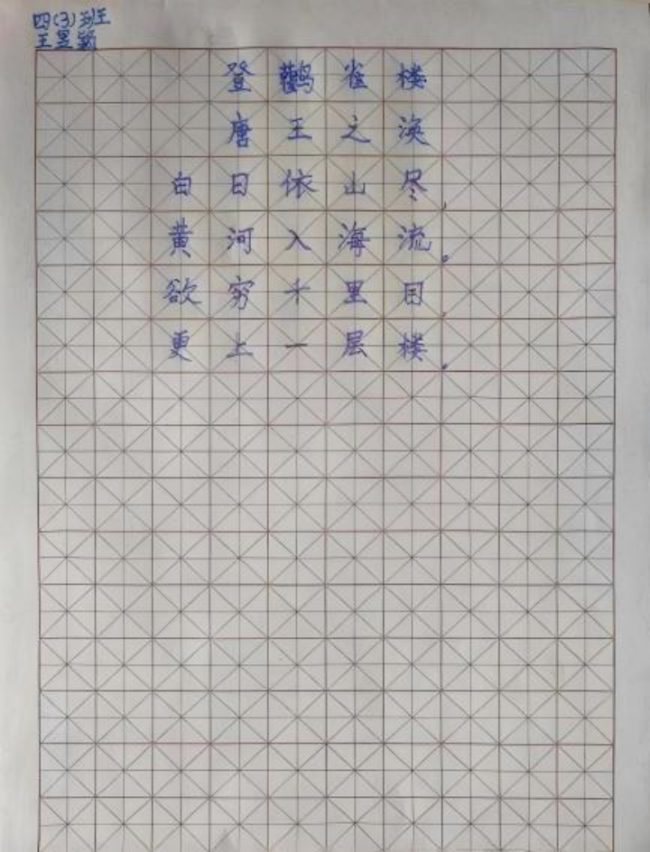 四(3)班
王昱
登鹳雀楼
唐王之涣
白日依山尽,
黄河入海流。
欲穷千里目,
更上一层楼。